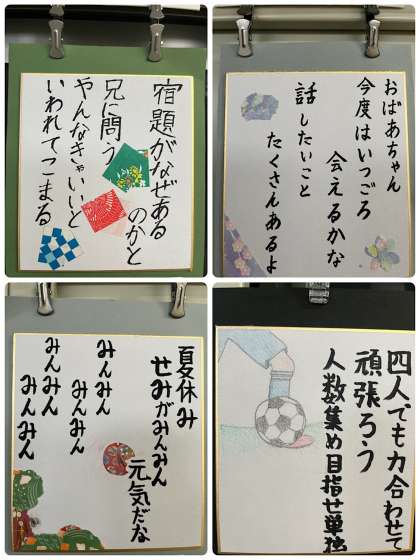 宿題がなぜある
のかと
兄に問う
やんなきゃいいと
いわれてこまる
おばあちゃん
今度はいつごろ
会えるかな
話したいこと
たくさんあるよ
夏休み
せみがみんみん
元気だな
みんみん
みんみん
みんみん
みんみん
四人でも力合わせて
頑張ろう
人数集め目指せ単独